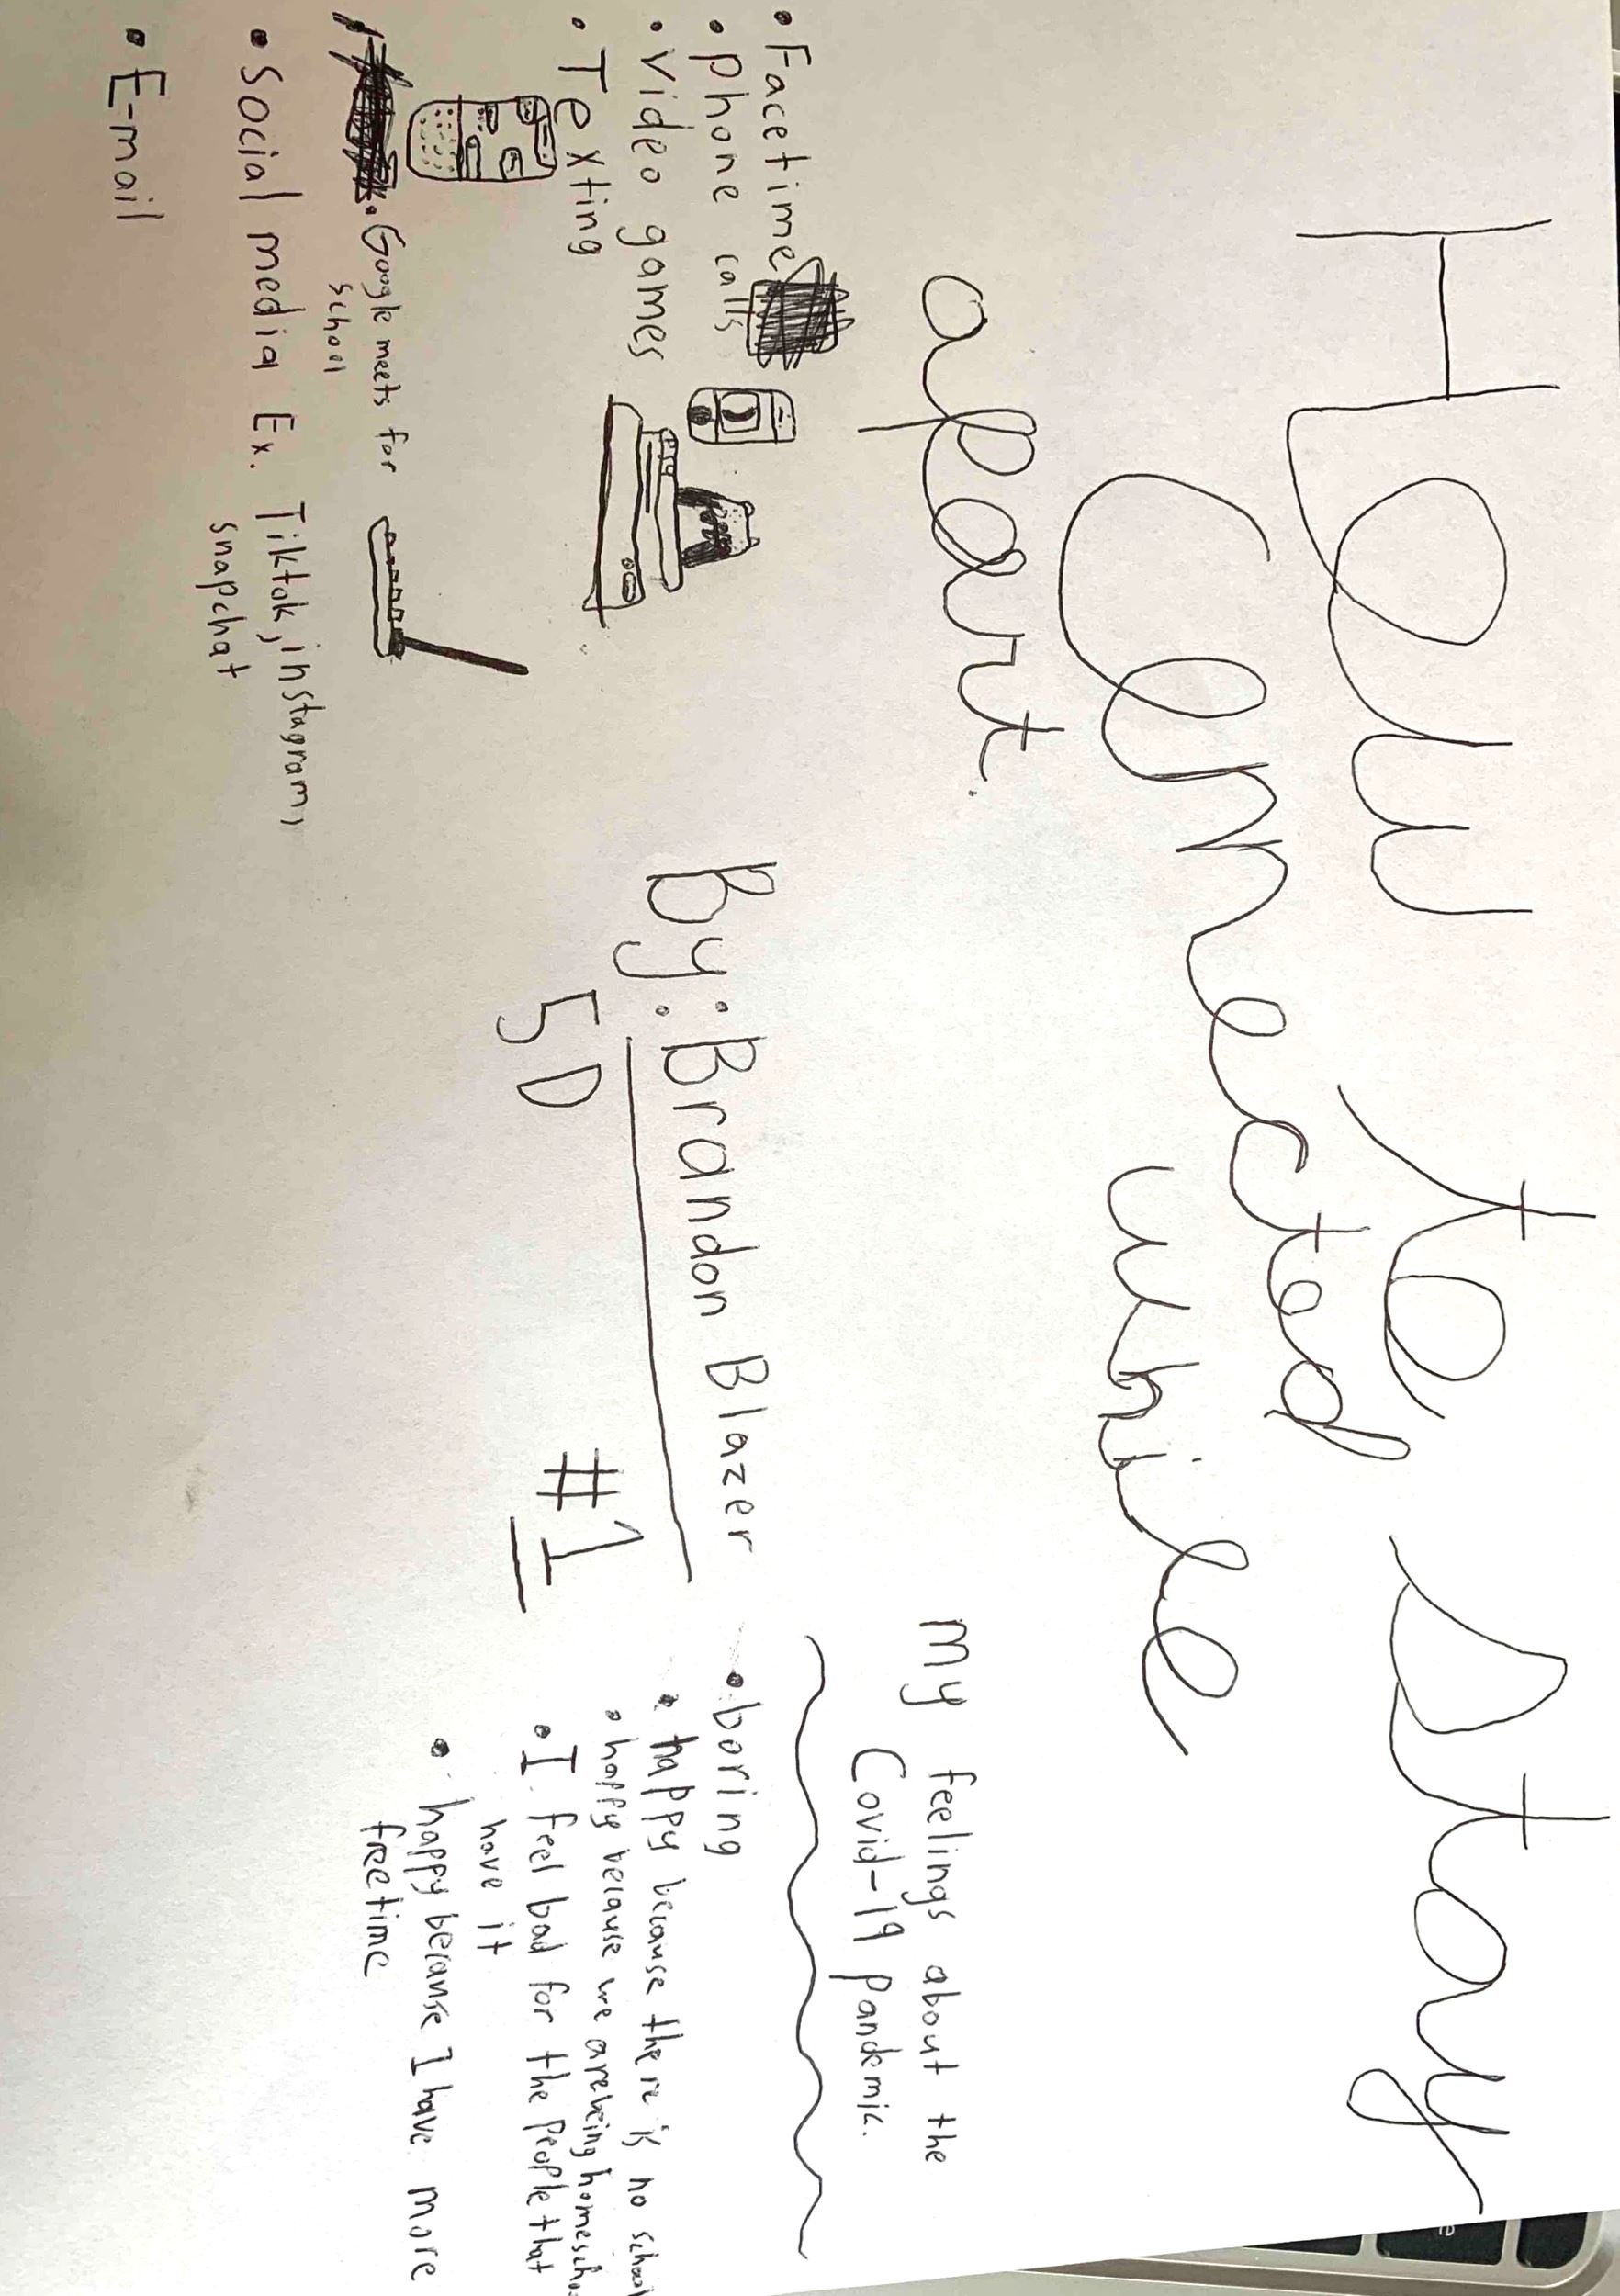 How to Stay
Connected while
apart.
• Facetime
• Phone calls
• Video games
• Texting
• Google meets for
school
• Social media Ex. Tiktok, instagram,
snapchat
• E-mail
By: Brandon Blazer
5D #1
My feelings about the
Covid-19 Pandemic.
• boring
• happy because there is no school
• happy because we are being homescho
• I feel bad for the People that
have it
• happy because I have more
freetime